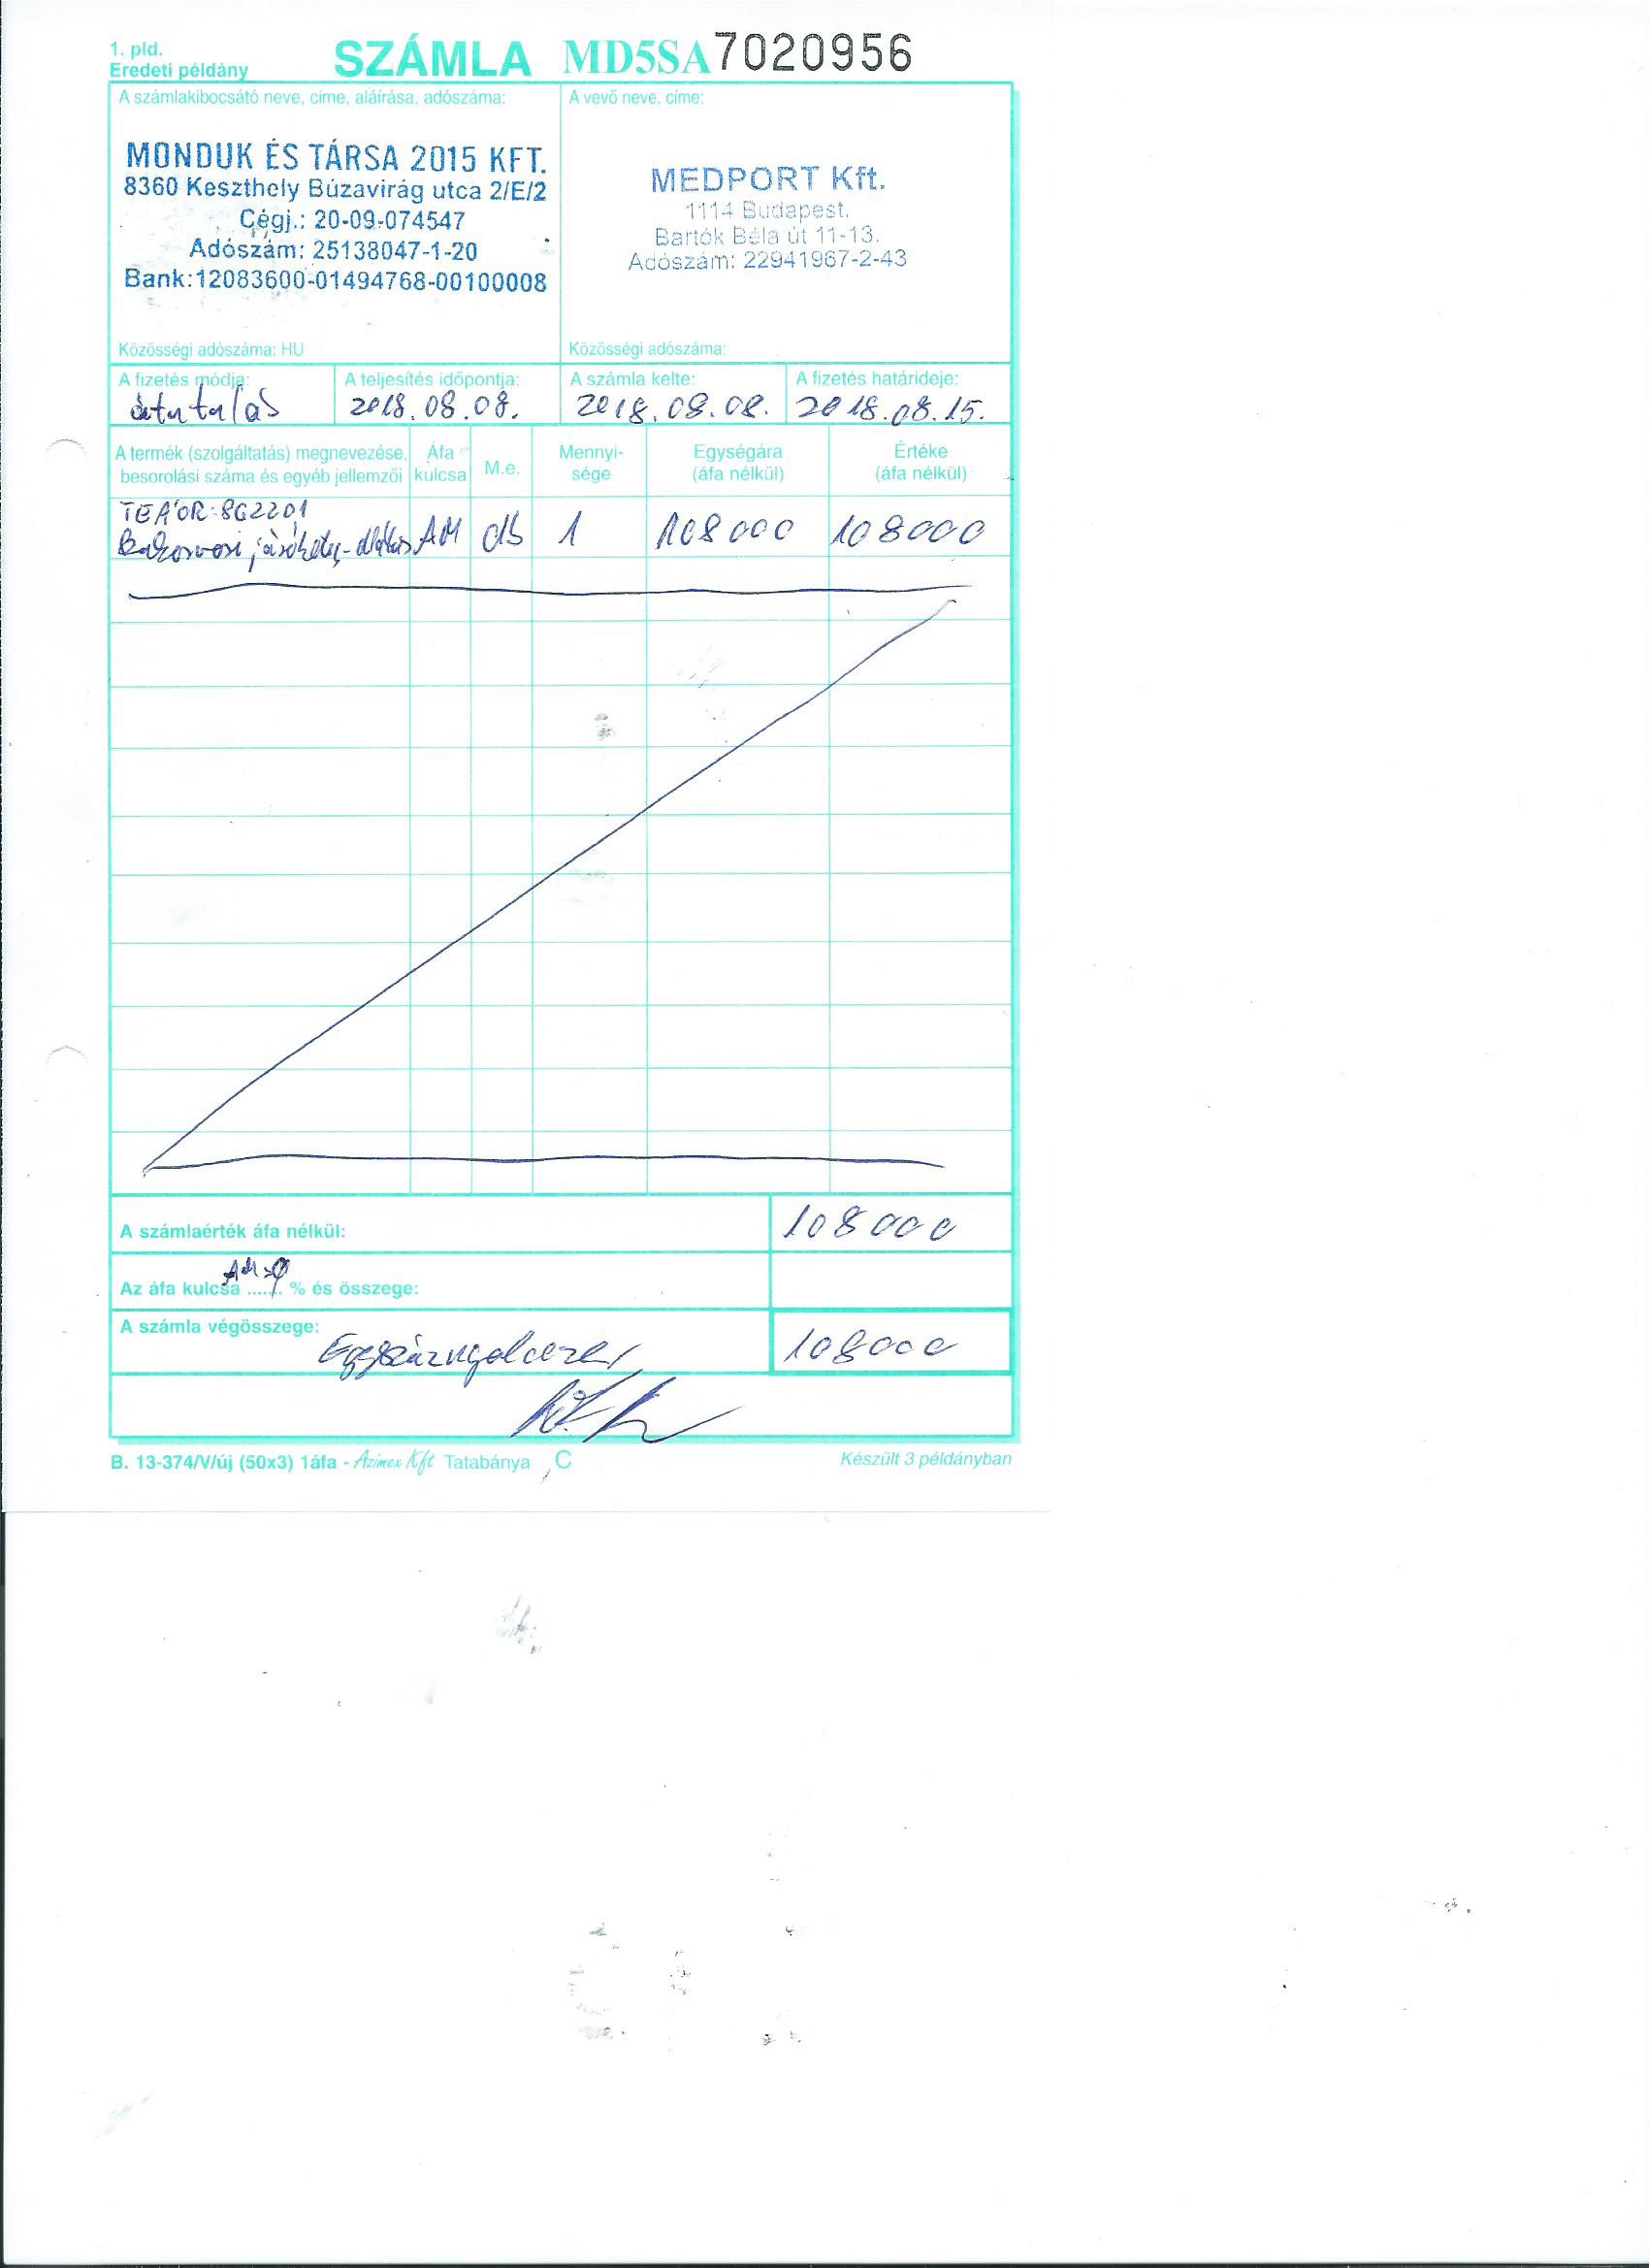 1. pld.
Eredeti példány
SZÁMLA MD5SA 7020956
A számlakibocsátó neve, címe, aláírása, adószáma:
MONDUK ÉS TÁRSA 2015 KFT.
8360 Keszthely Búzavirág utca 2/E/2
Cégj.: 20-09-074547
Adószám: 25138047-1-20
Bank:12083600-01494768-00100008
Közösségi adószáma: HU
A vevő neve, címe:
MEDPORT Kft.
1114 Budapest.
Bartók Béla út 11-13.
Adószám: 22941967-2-43
Közösségi adószáma:
A fizetés módja:
átutalás
A teljesítés időpontja:
2018.08.08.
A számla kelte:
2018.08.08.
A fizetés határideje:
2018.08.15.
A termék (szolgáltatás) megnevezése, besorolási száma és egyéb jellemzői
Áfa kulcsa
M.e.
Mennyi-
sége
Egységára
(áfa nélkül)
Értéke
(áfa nélkül)
TEÁOR:862201
járóbeteg-ellátás AM db 1 108000 108000
A számlaérték áfa nélkül: 108000
AM=0
Az áfa kulcsa ...... % és összege:
A számla végösszege: Egyszáznyolcezer 108000
B. 13-374/V/új (50x3) 1áfa - Azimex Kft Tatabánya C
Készült 3 példányban